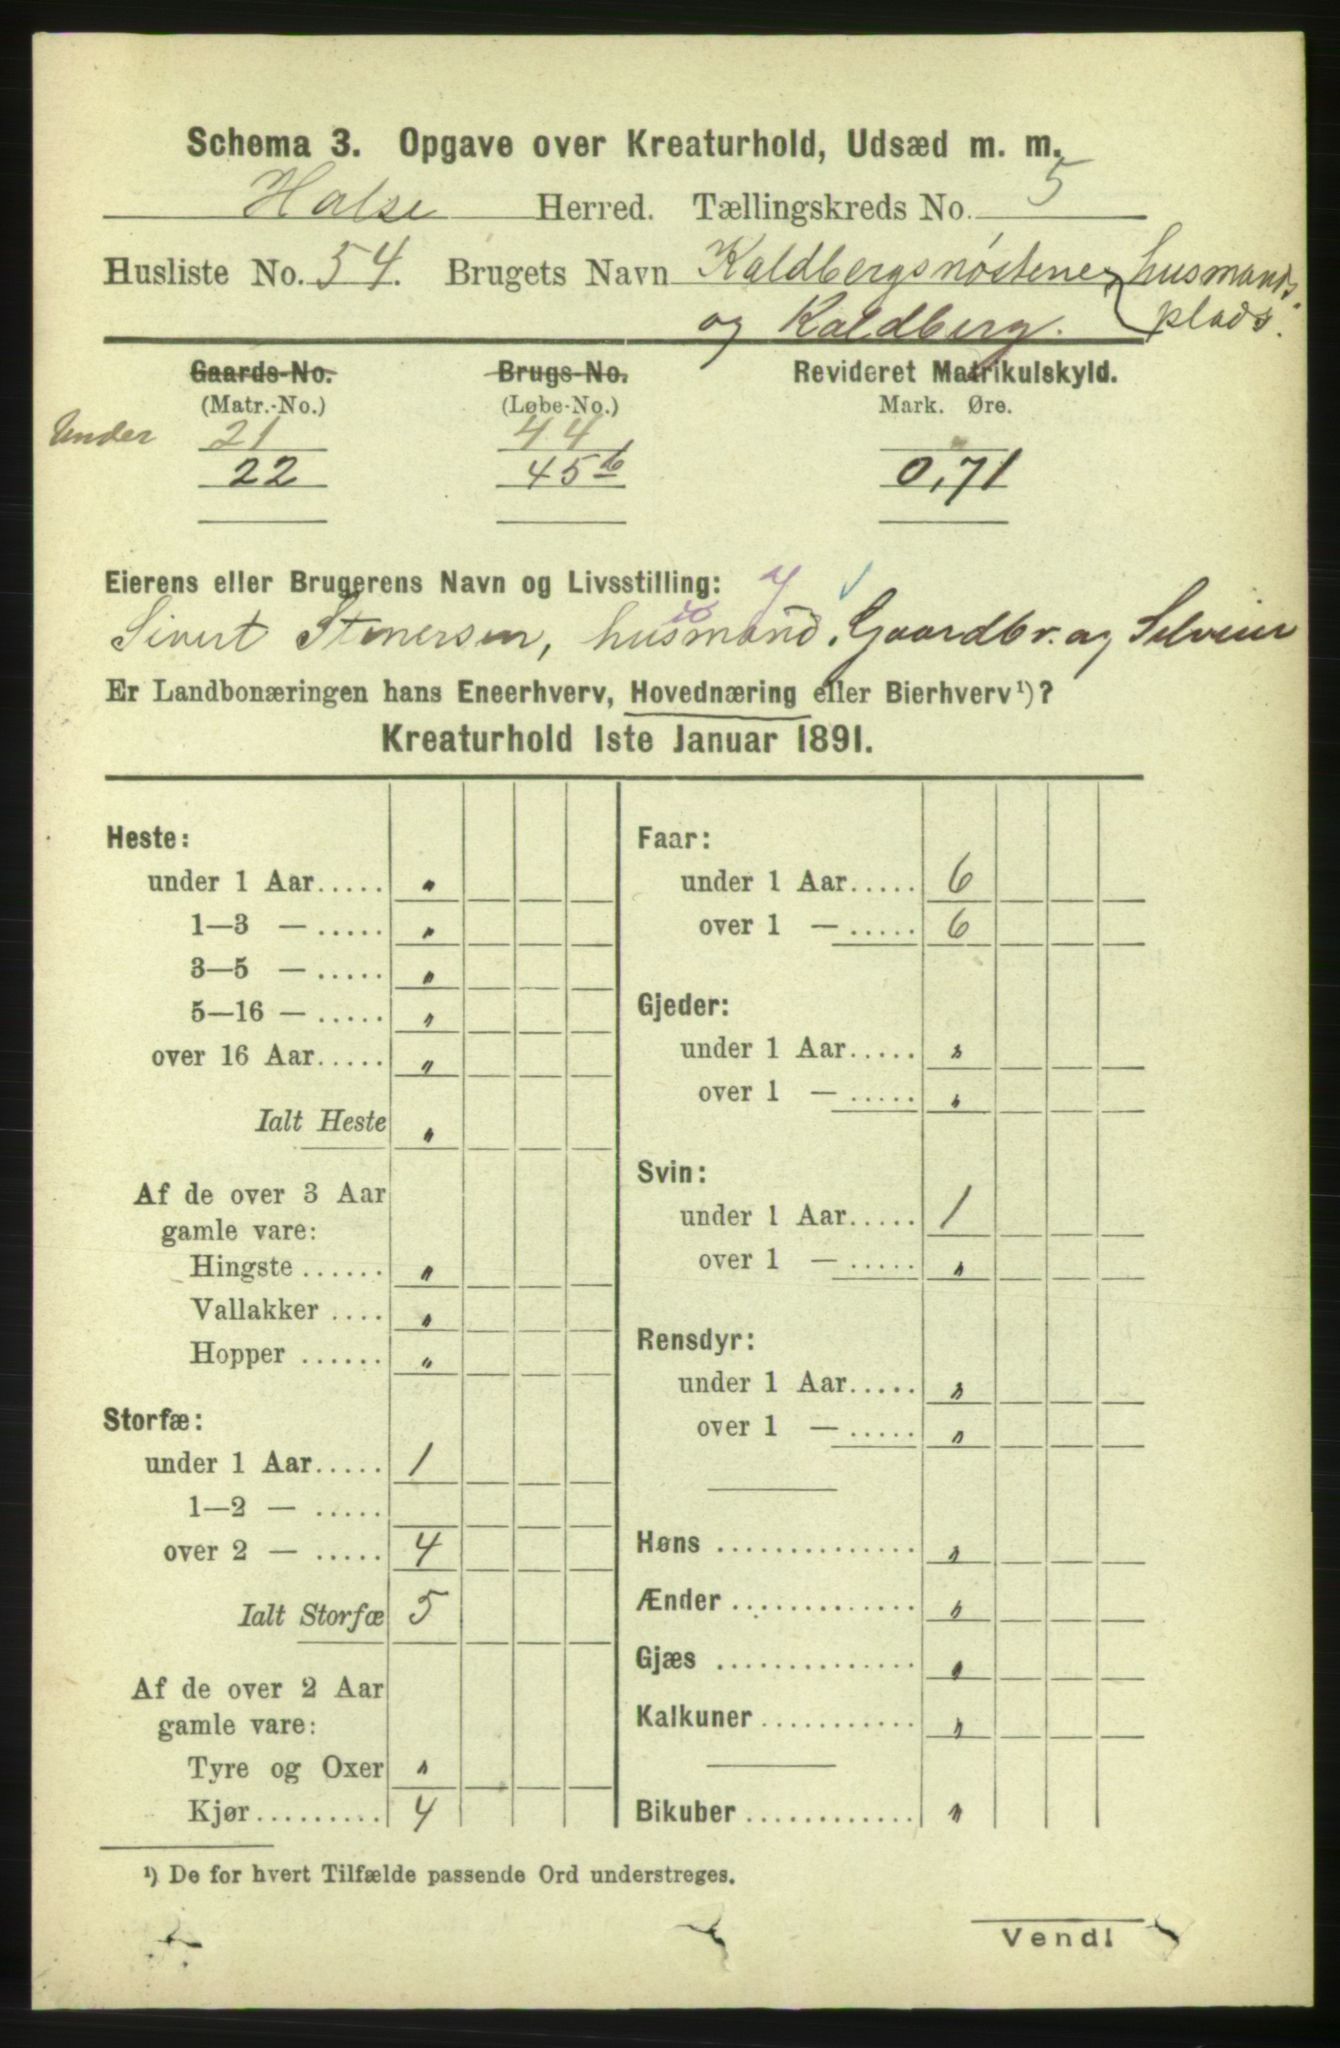 Schema 3. Opgave over Kreaturhold, Udsæd m. m.
Halse Herred. Tællingskreds No. 5
Husliste No. 54. Brugets Navn Kaldbergsnøstene, husmands-
og Kaldberg. plads.
Gaards-No. Brugs-No. Revideret Matrikulskyld.
(Matr.-No.) (Løbe-No.) Mark. Øre.
Under 21 44
22 45b 0,71
Eierens eller Brugerens Navn og Livsstilling:
Sivert Stenersen, husmand, Gaardbr. og Selveier
Er Landbonæringen hans Eneerhverv, Hovednæring eller Bierhverv¹)?
Kreaturhold 1ste Januar 1891.
Heste:
under 1 Aar..... "
1—3 — ..... "
3—5 — ..... "
5—16 — ..... "
over 16 Aar..... "
Ialt Heste "
Af de over 3 Aar
gamle vare:
Hingste ...... "
Vallakker .... "
Hopper ...... "
Storfæ:
under 1 Aar..... 1
1—2 — .....
over 2 — ..... 4
Ialt Storfæ 5
Af de over 2 Aar
gamle vare:
Tyre og Oxer "
Kjør......... 4
Faar:
under 1 Aar..... 6
over 1 — ..... 6
Gjeder:
under 1 Aar..... "
over 1 — ..... "
Svin:
under 1 Aar..... 1
over 1 — ..... "
Rensdyr:
under 1 Aar..... "
over 1 — ..... "
Høns .............. "
Ænder ............. "
Gjæs .............. "
Kalkuner ............ "
Bikuber ............. "
¹) De for hvert Tilfælde passende Ord understreges.
Vend!